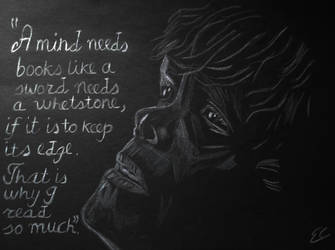 "A mind needs
books like a
sword needs
a whetstone,
if it is to keep
its edge.
That is
why I
read
so much".